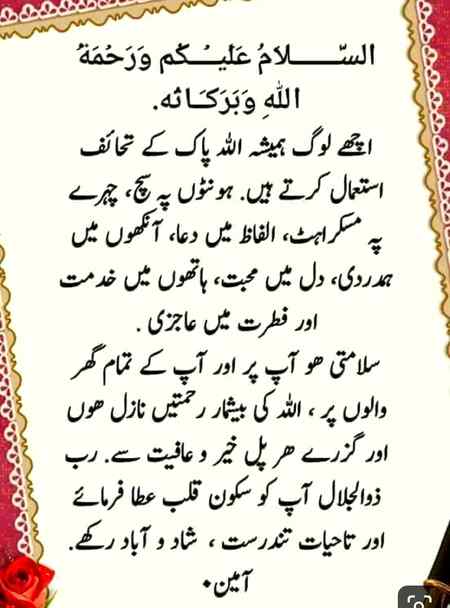 السّلَامُ عَلَيْكُم وَرَحْمَةُ
اللّٰهِ وَبَرَكَاتُه.
اچھے لوگ ہمیشہ اللہ پاک کے تحائف
استعمال کرتے ہیں. ہونٹوں پہ سچ، چہرے
پہ مسکراہٹ، الفاظ میں دعا، آنکھوں میں
ہمدردی، دل میں محبت، ہاتھوں میں خدمت
اور فطرت میں عاجزی .
سلامتی ھو آپ پر اور آپ کے تمام گھر
والوں پر ، اللہ کی بیشمار رحمتیں نازل ھوں
اور گزرے ھر پل خیر و عافیت سے. رب
ذوالجلال آپ کو سکون قلب عطا فرمائے
اور تاحیات تندرست ، شاد و آباد رکھے.
آمین•